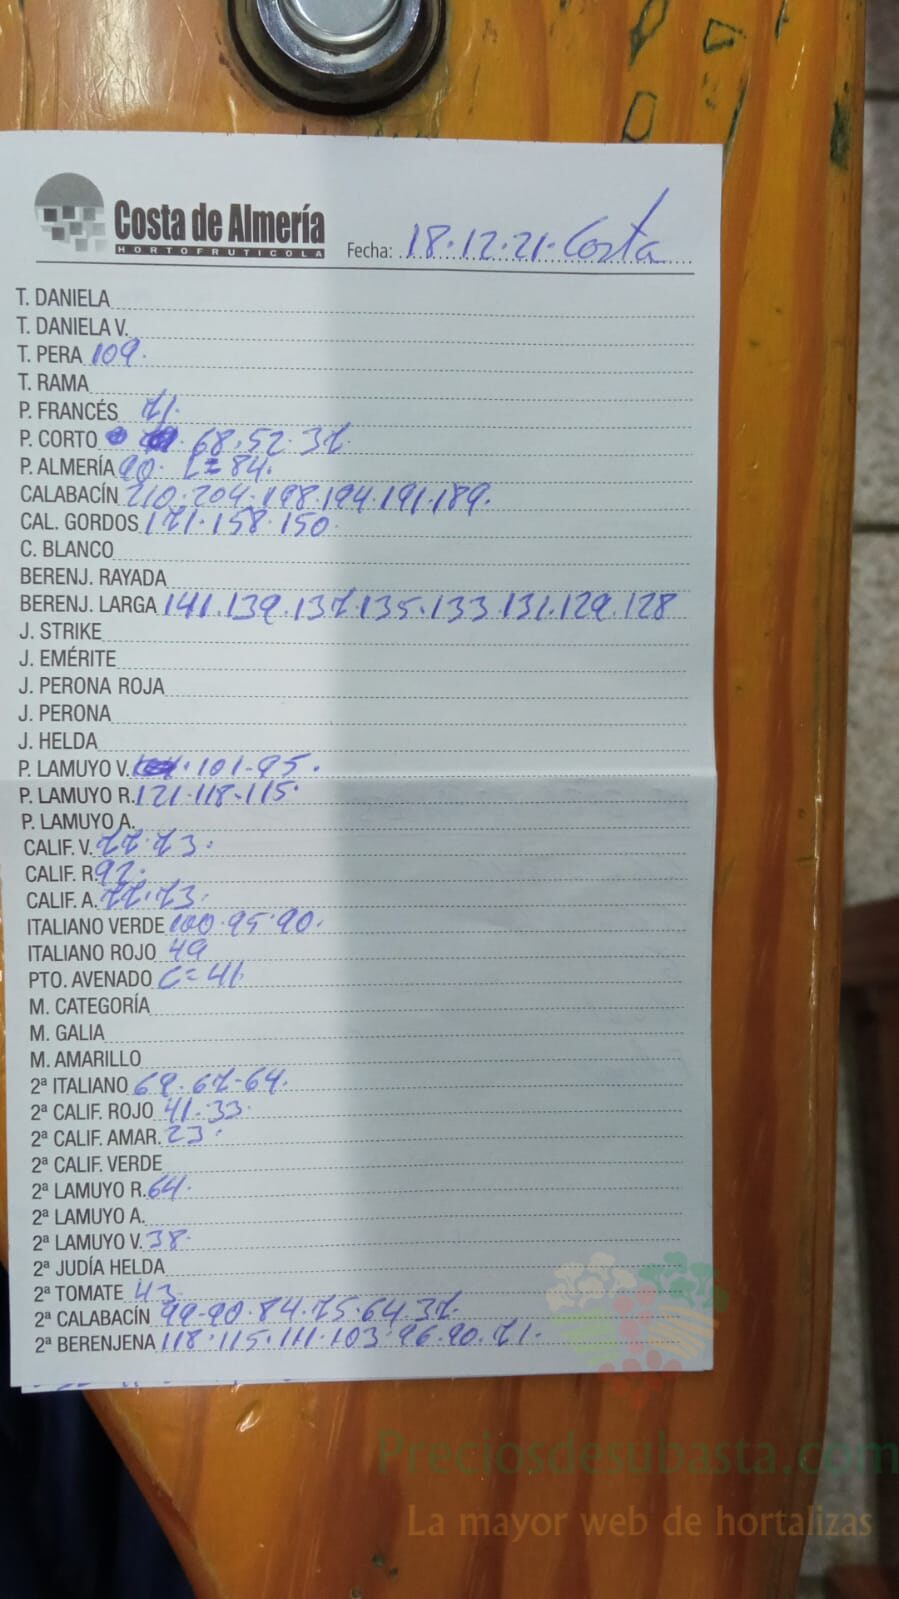 Costa de Almería
HORTOFRUTICOLA
Fecha: 18.12.21. Costa
T. DANIELA
T. DANIELA V.
T. PERA 109.
T. RAMA
P. FRANCÉS 71.
P. CORTO 68.52.37
P. ALMERÍA 90. L=84.
CALABACÍN 210.204.198.194.191.189.
CAL. GORDOS 171.158.150.
C. BLANCO
BERENJ. RAYADA
BERENJ. LARGA 141.139.137.135.133.131.129.128
J. STRIKE
J. EMÉRITE
J. PERONA ROJA
J. PERONA
J. HELDA
P. LAMUYO V. 101-95.
P. LAMUYO R. 121-118-115.
P. LAMUYO A.
CALIF. V. 77.73.
CALIF. R. 92.
CALIF. A. 77.73.
ITALIANO VERDE 100.95.90.
ITALIANO ROJO 49
PTO. AVENADO C=41.
M. CATEGORÍA
M. GALIA
M. AMARILLO
2ª ITALIANO 69.67-64.
2ª CALIF. ROJO 41.33.
2ª CALIF. AMAR. 23.
2ª CALIF. VERDE
2ª LAMUYO R. 64.
2ª LAMUYO A.
2ª LAMUYO V. 38.
2ª JUDÍA HELDA
2ª TOMATE 43
2ª CALABACÍN 99-90.84.75.64.37.
2ª BERENJENA 118.115.111.103.96.90.71.
Preciosdesubasta.com
La mayor web de hortalizas